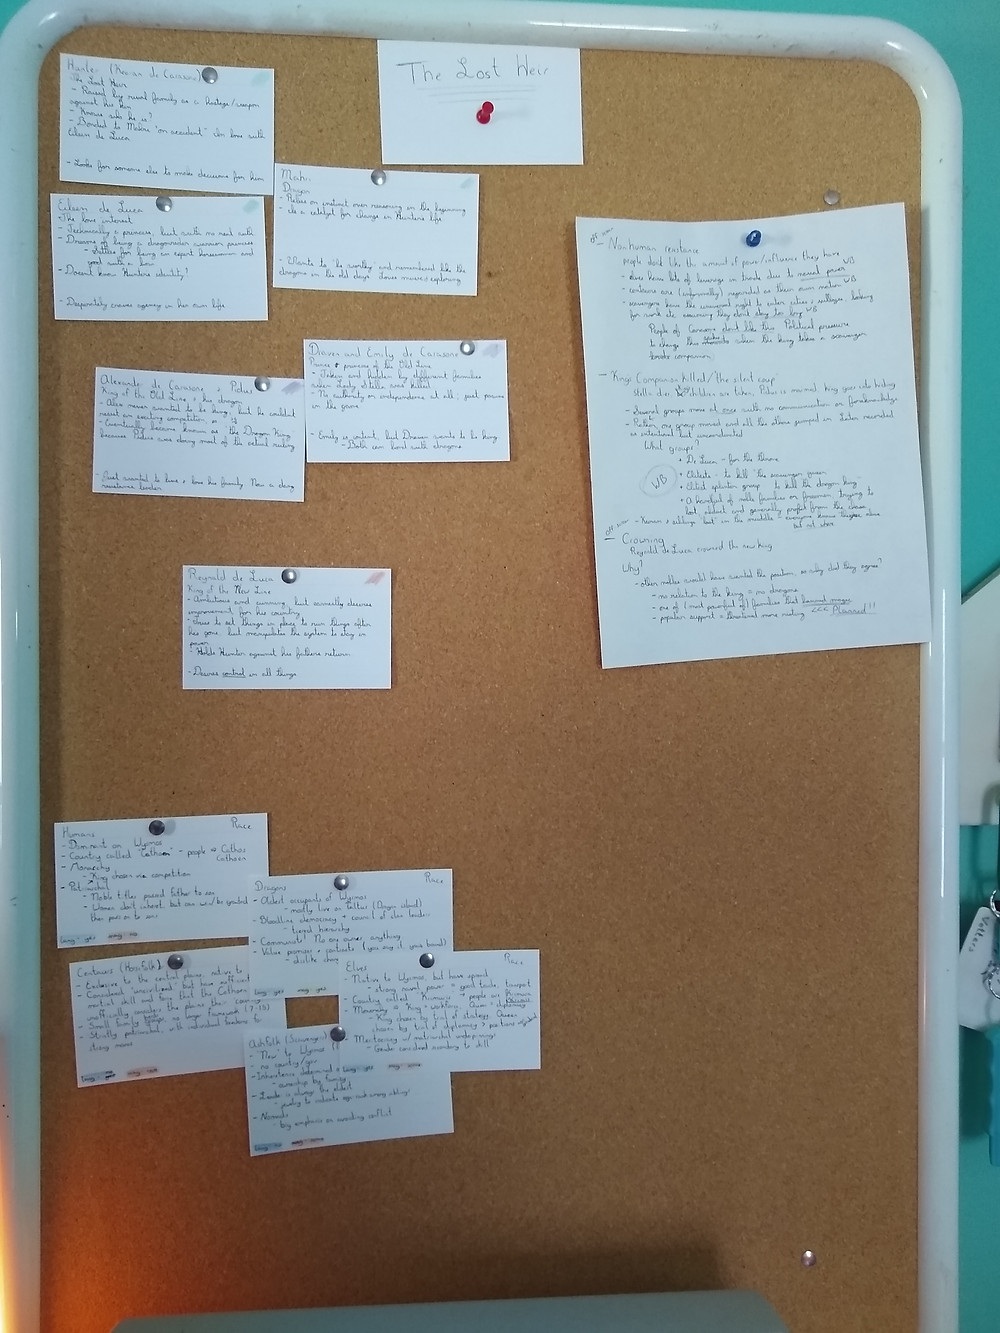 The Lost Heir
Hunter (Kearan de Carasone)
The Lost Heir
- Raised by rival family as a hostage/weapon
against his kin
- Knows who he is?
- Bonded to Mahri "on accident" In love with
Eileen de Luca
- Looks for someone else to make decisions for him
Mahri
Dragon
- Relies on instinct over reasoning in the beginning
- Is a catalyst for change in Hunters life
- Wants to "be worthy" and remembered like the
dragons in the old days. Loves mouse exploring
Eileen de Luca
- The love interest
- Technically a princess, but with no real
- Dreams of being a dragonrider warrior princess
- Settles for being an expert horsewoman and
good with a bow
- Doesn't know Hunters identity?
- Desperately craves agency in her own life
Draven and Emily de Carasone
Prince + princess of the Old Line
- Taken and hidden by different families
when Lady Stella was killed
- No authority or independence at all, just pawns
in the game
- Emily is content, but Draven wants to be king
- Both can bond with dragons
Alexander de Carasone + Potus
King of the Old Line + his dragon
- Alex never wanted to be king, but he couldn't
resist an exciting competition, so
- Eventually became known as the Dragon King
because was doing most of the actual ruling
- Just wanted to live + love his family. Now a
resistance leader
Reynald de Luca
King of the New Line
- Ambitious and cunning, but earnestly desires
improvement for his country
- Tries to set things in place to run things after
hes gone, but manipulates the system to stay in
power
- Holds Hunter against his fathers return
- Desires control in all things
Nonhuman resistance
people don't like the amount of power/influence they have WB
- elves have lots of leverage in trade due to naval power
- centaurs are (informally) regarded as their own nation WB
- scavengers have the universal right to enter cities + villages looking
for work etc. assuming they don't stay too long WB
People of Carasone don't like this. Political pressure
to change this when the king takes a scavenger
companion
- Kings Companion killed/the silent coup
Stella dies, children are taken, is Kings goes into hiding
- Several groups move at once with no communication or
- Rather, one group moved and all the others jumped in. Later recorded
as intentional but uncoordinated
What groups?
+ De Luca - for the throne
WB
+ Elitests - to kill the scavenger
+ Elitist splinter group - to kill the dragon king
+ A handful of noble families or trying to
loot, abduct and generally profit from the chaos
- Kearan + siblings "lost" in the middle - everyone knows alive
but not where
- Crowning
Reynald de Luca crowned the new king
Why?
- other nobles would have wanted the position, so why did they agree?
- no relation to the king = no dragons
- one of most powerful families that
- popular support = threatened more rioting <<< Planned!!
Humans Race
- Dominant on Wyrmos
- Country called "Cathoen" - people =
- Monarchy
- King chosen via competition
- Patriarchal
- Noble titles passed father to son
- Women don't inherit, but can be granted
then pass on to sons
Dragons Race
- Oldest occupants of Wyrmos
- mostly live on
- Bloodline democracy + council of clan leaders
- tiered hierarchy
- Communist! No one owns anything
- Value promises + contracts (you say it, your bond)
- dislike
Centaurs
- Exclusive to the central plains, native to
- Considered "uncivilized" but have sufficient
martial skill and that the
unofficially consider the plains their
- Small family groups, no larger framework (7-15)
- Strictly patriarchal, with individual freedoms for
strong mares
Elves Race
- Native to Wyrmos, but have spread
- strong naval power = good trade, transport
- Country called people are
- Monarchy = King = warfare, Queen = diplomacy
- King chosen by trial of strategy. Queen
chosen by trial of diplomacy
- Meritocracy w/ matriarchal
- Gender considered secondary to skill
Ashfolk (Scavengers)
- "New" to Wyrmos
- no country/gov
- Inheritance determined
- ownership by family
- Leader is always the eldest
- Nomadic
- big emphasis on avoiding conflict